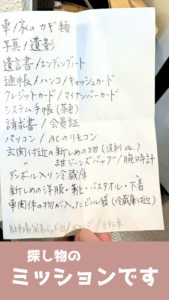 車/家のカギ類
写真/遺影
遺言書/エンディングノート
通帳/ハンコ/キャッシュカード
クレジットカード/マイナンバーカード
システム手帳(茶色)
請求書/会員証
パソコン/ACのリモコン
玄関付近の新しめの物
〃 紺ジーンズバッグ/腕時計
ダンボール入り冷蔵庫
新しめの洋服・靴・バスタオル・下着
車関係の物が入ったビニール袋(冷蔵庫近)
探し物の
ミッションです